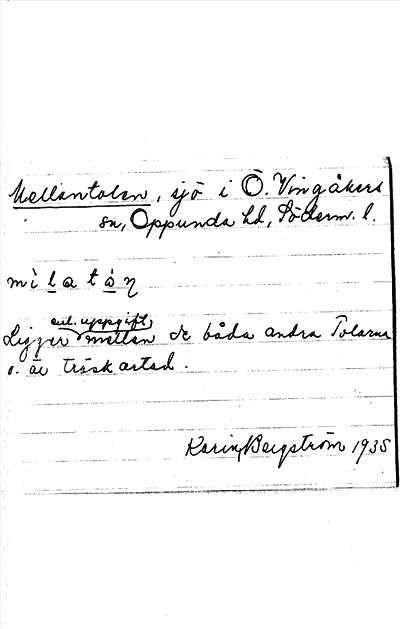 Mellantolen, sjö i Ö. Vingåkers
sn, Oppunda hd, Söderm. l.
enl. uppgift,
Ligger mellan de båda andra Tolarna
o. är träskartad.
Karin Bergström 1935